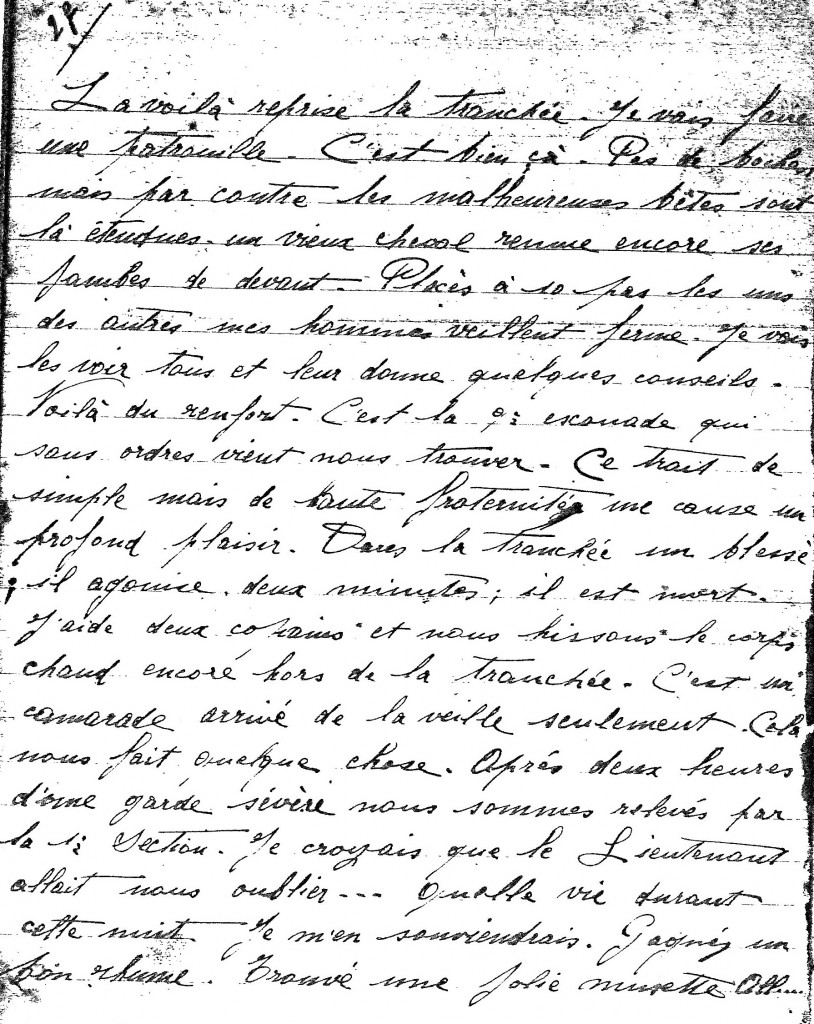 27
La voilà reprise la tranchée. Je vais faire
une patrouille. C'est bien çà. Pas de boches
mais par contre les malheureuses bêtes sont
là étendues. un vieux cheval remue encore ses
jambes de devant. Placés à 10 pas les uns
des autres mes hommes veillent ferme. Je vais
les voir tous et leur donne quelques conseils.
Voilà du renfort. C'est la 9e escouade qui
sans ordres vient nous trouver. Ce trait de
simple mais de haute fraternitée me cause un
profond plaisir. Dans la tranchée un blessé
; il agonise. deux minutes; il est mort.
J'aide deux copains et nous hissons le corps
chaud encore hors de la tranchée. C'est un
camarade arrivé de la veille seulement. Cela
nous fait quelque chose. Après deux heures
d'une garde sévère nous sommes relevés par
la 1e Section. Je croyais que le Lieutenant
allait nous oublier --- Quelle vie durant
cette nuit Je m'en souviendrais. Gagnéz un
bon rhume. Trouvé une jolie musette All...